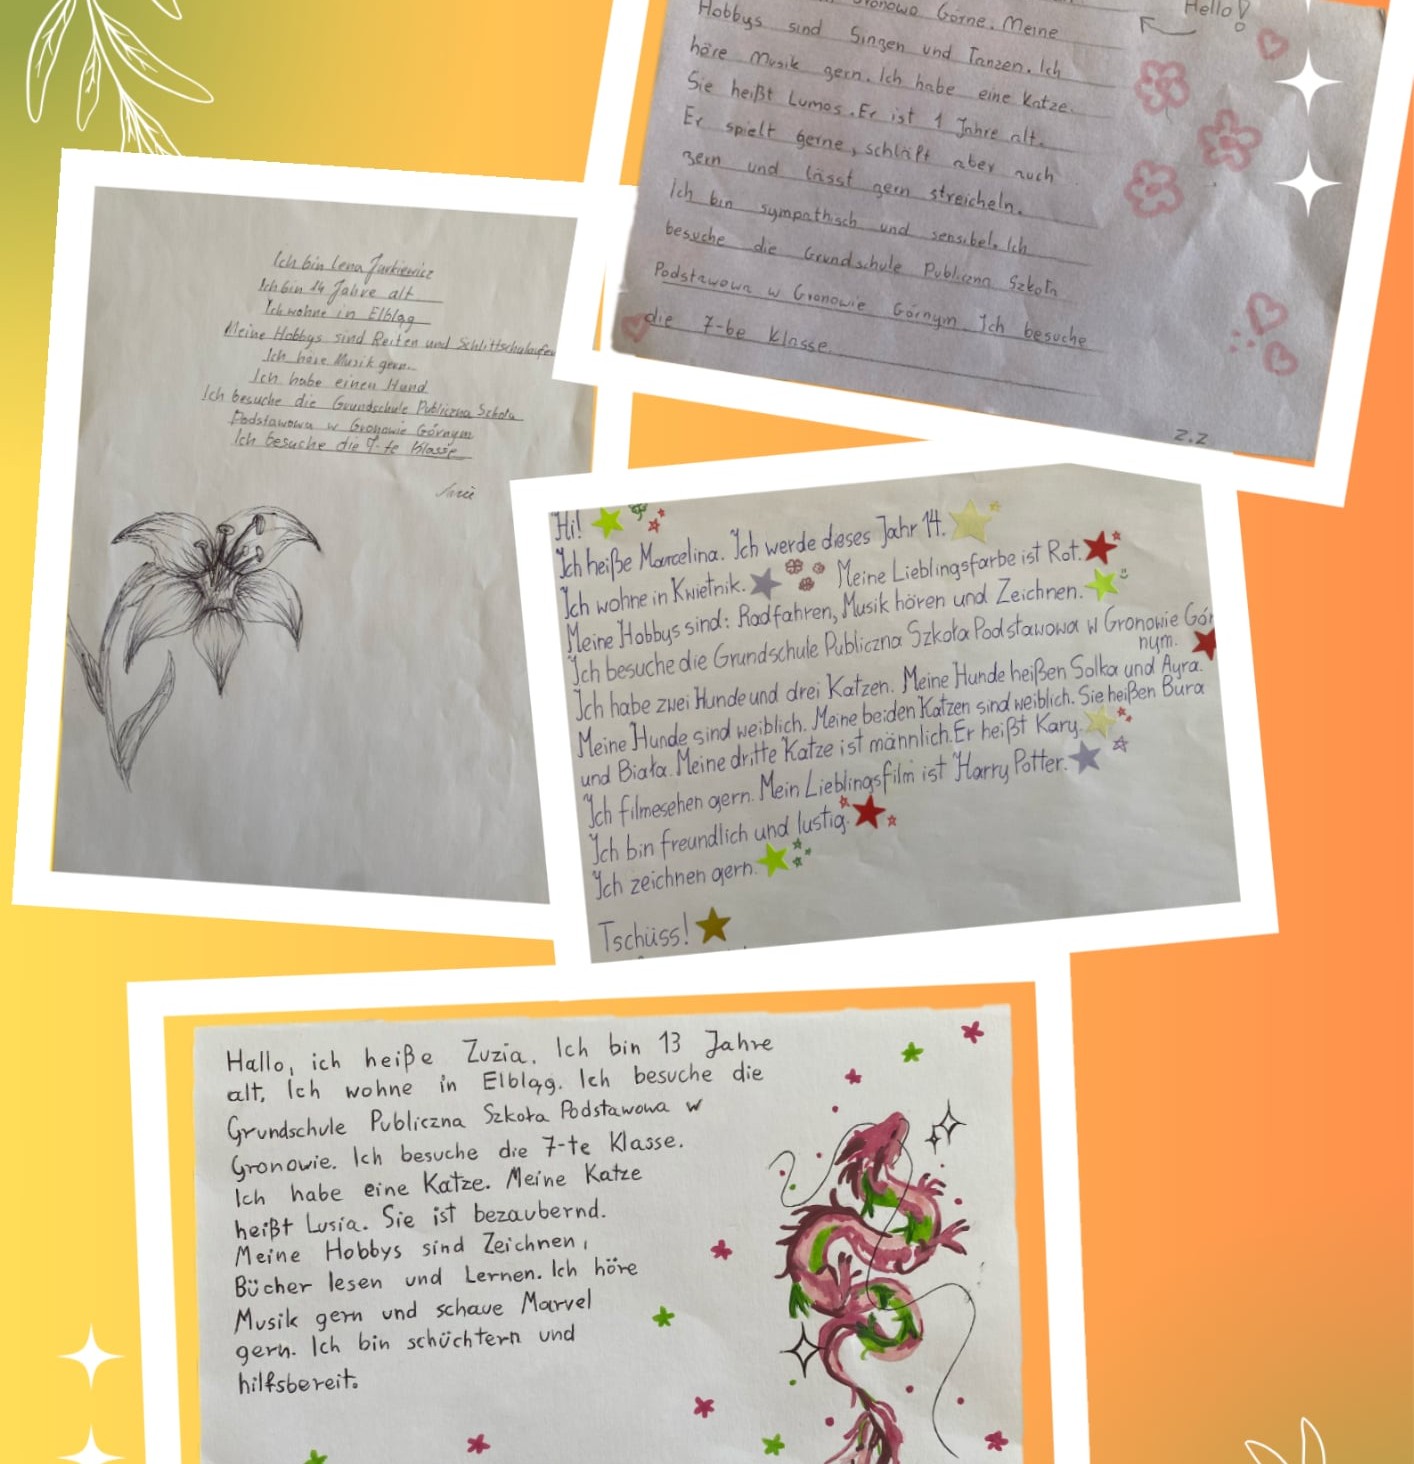 Gronowo Górne. Meine
Hobbys sind Singen und Tanzen. Ich
höre Musik gern. Ich habe eine Katze.
Sie heißt Lumos. Er ist 1 Jahre alt.
Er spielt gerne, schläft aber auch
gern und lässt gern streicheln.
Ich bin sympathisch und sensibel. Ich
besuche die Grundschule Publiczna Szkoła
Podstawowa w Gronowie Górnym. Ich besuche
die 7-be Klasse.
Hello!
Z.Z
Ich bin Lena Jurkiewicz
Ich bin 14 Jahre alt
Ich wohne in Elbląg
Meine Hobbys sind Reiten und Schlittschulaufen
Ich höre Musik gern.
Ich habe einen Hund
Ich besuche die Grundschule Publiczna Schola
Podstawowa w Gronowie Górnym
Ich besuche die 7-te Klasse
Hi!
Ich heiße Marcelina. Ich werde dieses Jahr 14.
Ich wohne in Kwietnik. Meine Lieblingsfarbe ist Rot.
Meine Hobbys sind: Radfahren, Musik hören und Zeichnen.
Ich besuche die Grundschule Publiczna Szkoła Podstawowa w Gronowie Gór
nym.
Ich habe zwei Hunde und drei Katzen. Meine Hunde heißen Solka und Ayra.
Meine Hunde sind weiblich. Meine beiden Katzen sind weiblich. Sie heißen Bura
und Biała. Meine dritte Katze ist männlich. Er heißt Kary.
Ich filmesehen gern. Mein Lieblingsfilm ist Harry Potter.
Ich bin freundlich und lustig.
Ich zeichnen gern.
Tschüss!
Hallo, ich heiße Zuzia. Ich bin 13 Jahre
alt. Ich wohne in Elbląg. Ich besuche die
Grundschule Publiczna Szkoła Podstawowa w
Gronowie. Ich besuche die 7-te Klasse.
Ich habe eine Katze. Meine Katze
heißt Lusia. Sie ist bezaubernd.
Meine Hobbys sind Zeichnen,
Bücher lesen und Lernen. Ich höre
Musik gern und schaue Marvel
gern. Ich bin schüchtern und
hilfsbereit.